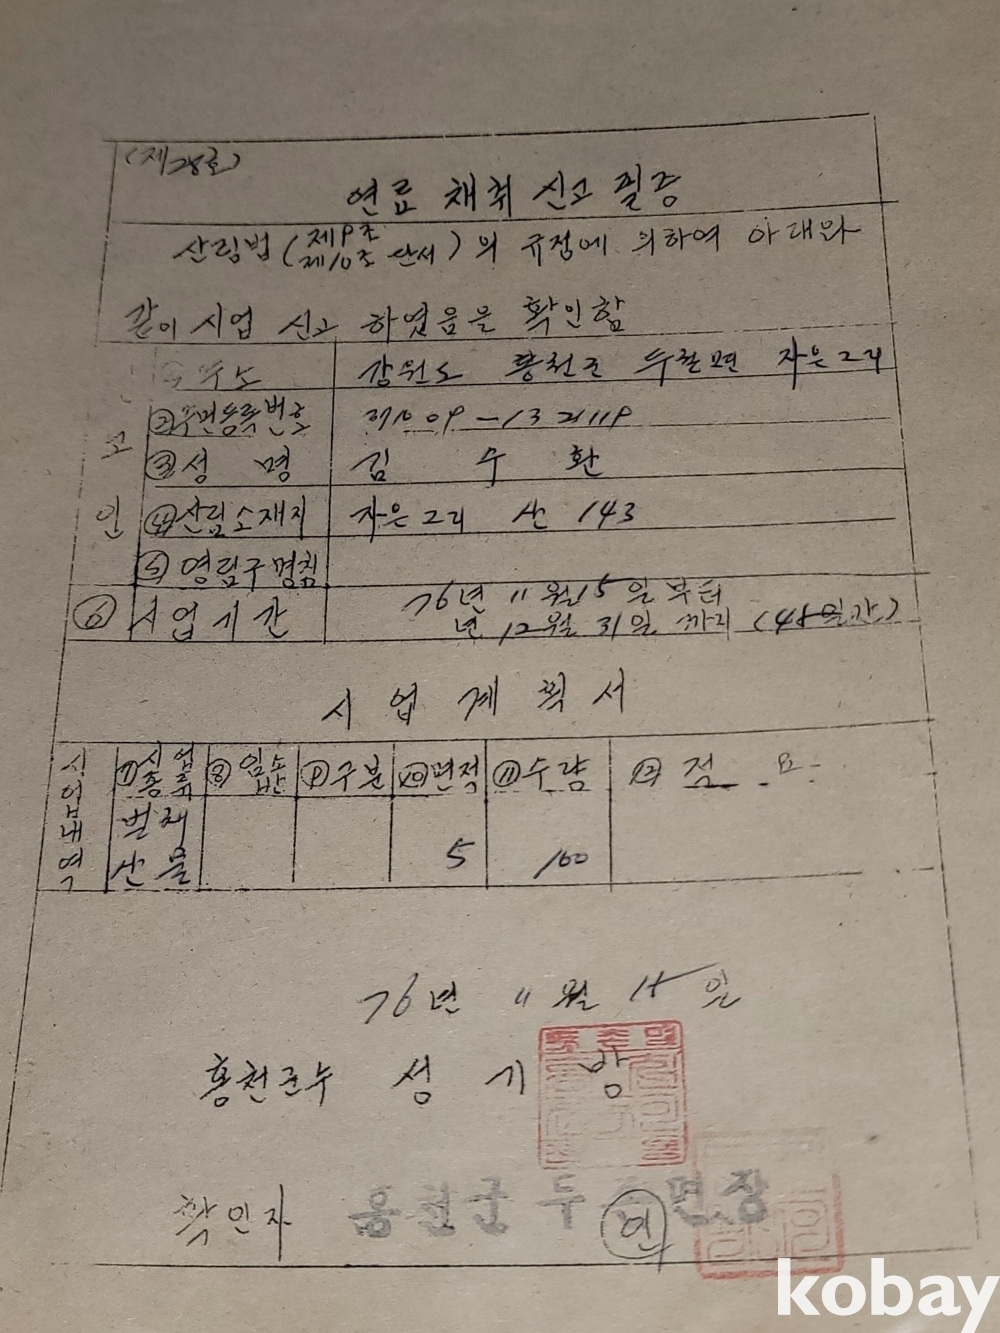 (제28호)
연료 채취 신고 필증
산림법 (제9조 제10조 단서) 의 규정에 의하여 아래와
같이 시업 신고 하였음을 확인함
신고인
① 주소 강원도 홍천군 두촌면 자은2리
② 주민등록번호
③ 성 명 김 수 환
④ 산림소재지 자은2리 산 143
⑤ 영림구명칭
⑥ 시업기간 76년 11월 15일부터
년 12월 31일 까지 (45일간)
시 업 계 획 서
시업내역
⑦ 시업종류 ⑧ 임소반 ⑨ 구분 ⑩ 면적 ⑪ 수량 ⑫ 적 요
벌채
산물 5 100
76년 11월 15일
홍천군수 성 기 방
확인자 홍천군 두 면장
인
kobay